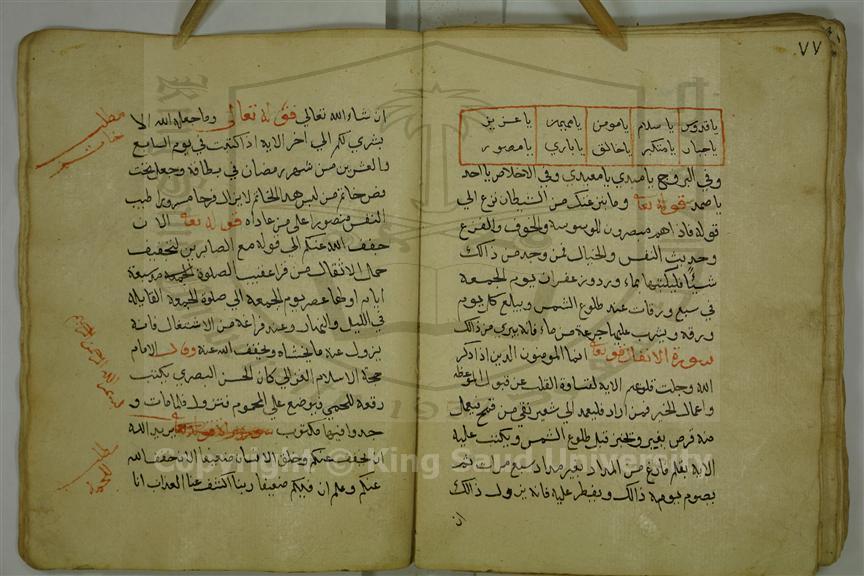 ٧٧
يا قدوس يا سلام يا مومن يا مهيمن يا عزيز
يا جبار يا متكبر يا خالق يا باري يا مصور
وفي البروج يا مبدي يا معيدي وفي الاخلاص يا احد
يا صمد قوله تعا وما ينزغنك من الشيطان نزغ الى
قوله فاذاهم مبصرون للوسوسة والخوف والفزع
وحديث النفس والخيال فمن وجد من ذالك
شيئًا فليكتبها بماء وردوزعفران يوم الجمعة
في سبع ورقات عند طلوع الشمس ويبلع كل يوم
ورقه ويشرب عليها جرعة من ماء فانه يبري من ذالك
سورة الانفال قوله تعا انما المومنون الذين اذا ذكر
الله وجلت قلوبهم الاية لقساوة القلب عن قبول الموعظه
واعمال الخير فمن اراد فليعمد الى شعير نقي من قمح فيعمل
منه قرص بغير وتخبز قبل طلوع الشمس ويكتب عليه
الاية بقلم فارغ من المداد بغير مداد سبع مرات ثم
يصوم يومه ذالك ويفطر عليه فانه يزول ذالك
ان
ان شاء الله تعالى قوله تعالى وما جعله الله الا
بشرى لكم الى آخر الاية اذا كتبت في يوم السابع
والعشرين من شهر رمضان في بطاقة وجعل تحت
فص خاتم من لبس هذا الخاتم لا يزال فرحا مسرورا طيب
النفس منصورا على من عاداه قوله تعا الان
خفف الله عنكم الى قوله مع الصابرين لتخفيف
حمل الاثقال من قراعقيب الصلوة الخمسة سبعة
ايام اولها عصر يوم الجمعة الى صلوة الجمعة القابلة
في الليل والنهار وعند فراغه من الاشتغال فانه
يزول عنه ما يخشاه ويخفف الله عنه وقال الامام
حجة الاسلام الغزالي كان الحسن البصري يكتب
رقعة للحمي فتوضع على المحموم فتزول فلما مات و
جدوا فيها مكتوب يريد الله
ان يخفف عنكم وخلق الانسان ضعيفا الان خفف الله
عنكم وعلم ان فيكم ضعيفا ربنا اكشف عنا العذاب انا
مطلب
خاتم
بسم الله الرحمن الرحيم
Copyright © King Saud University